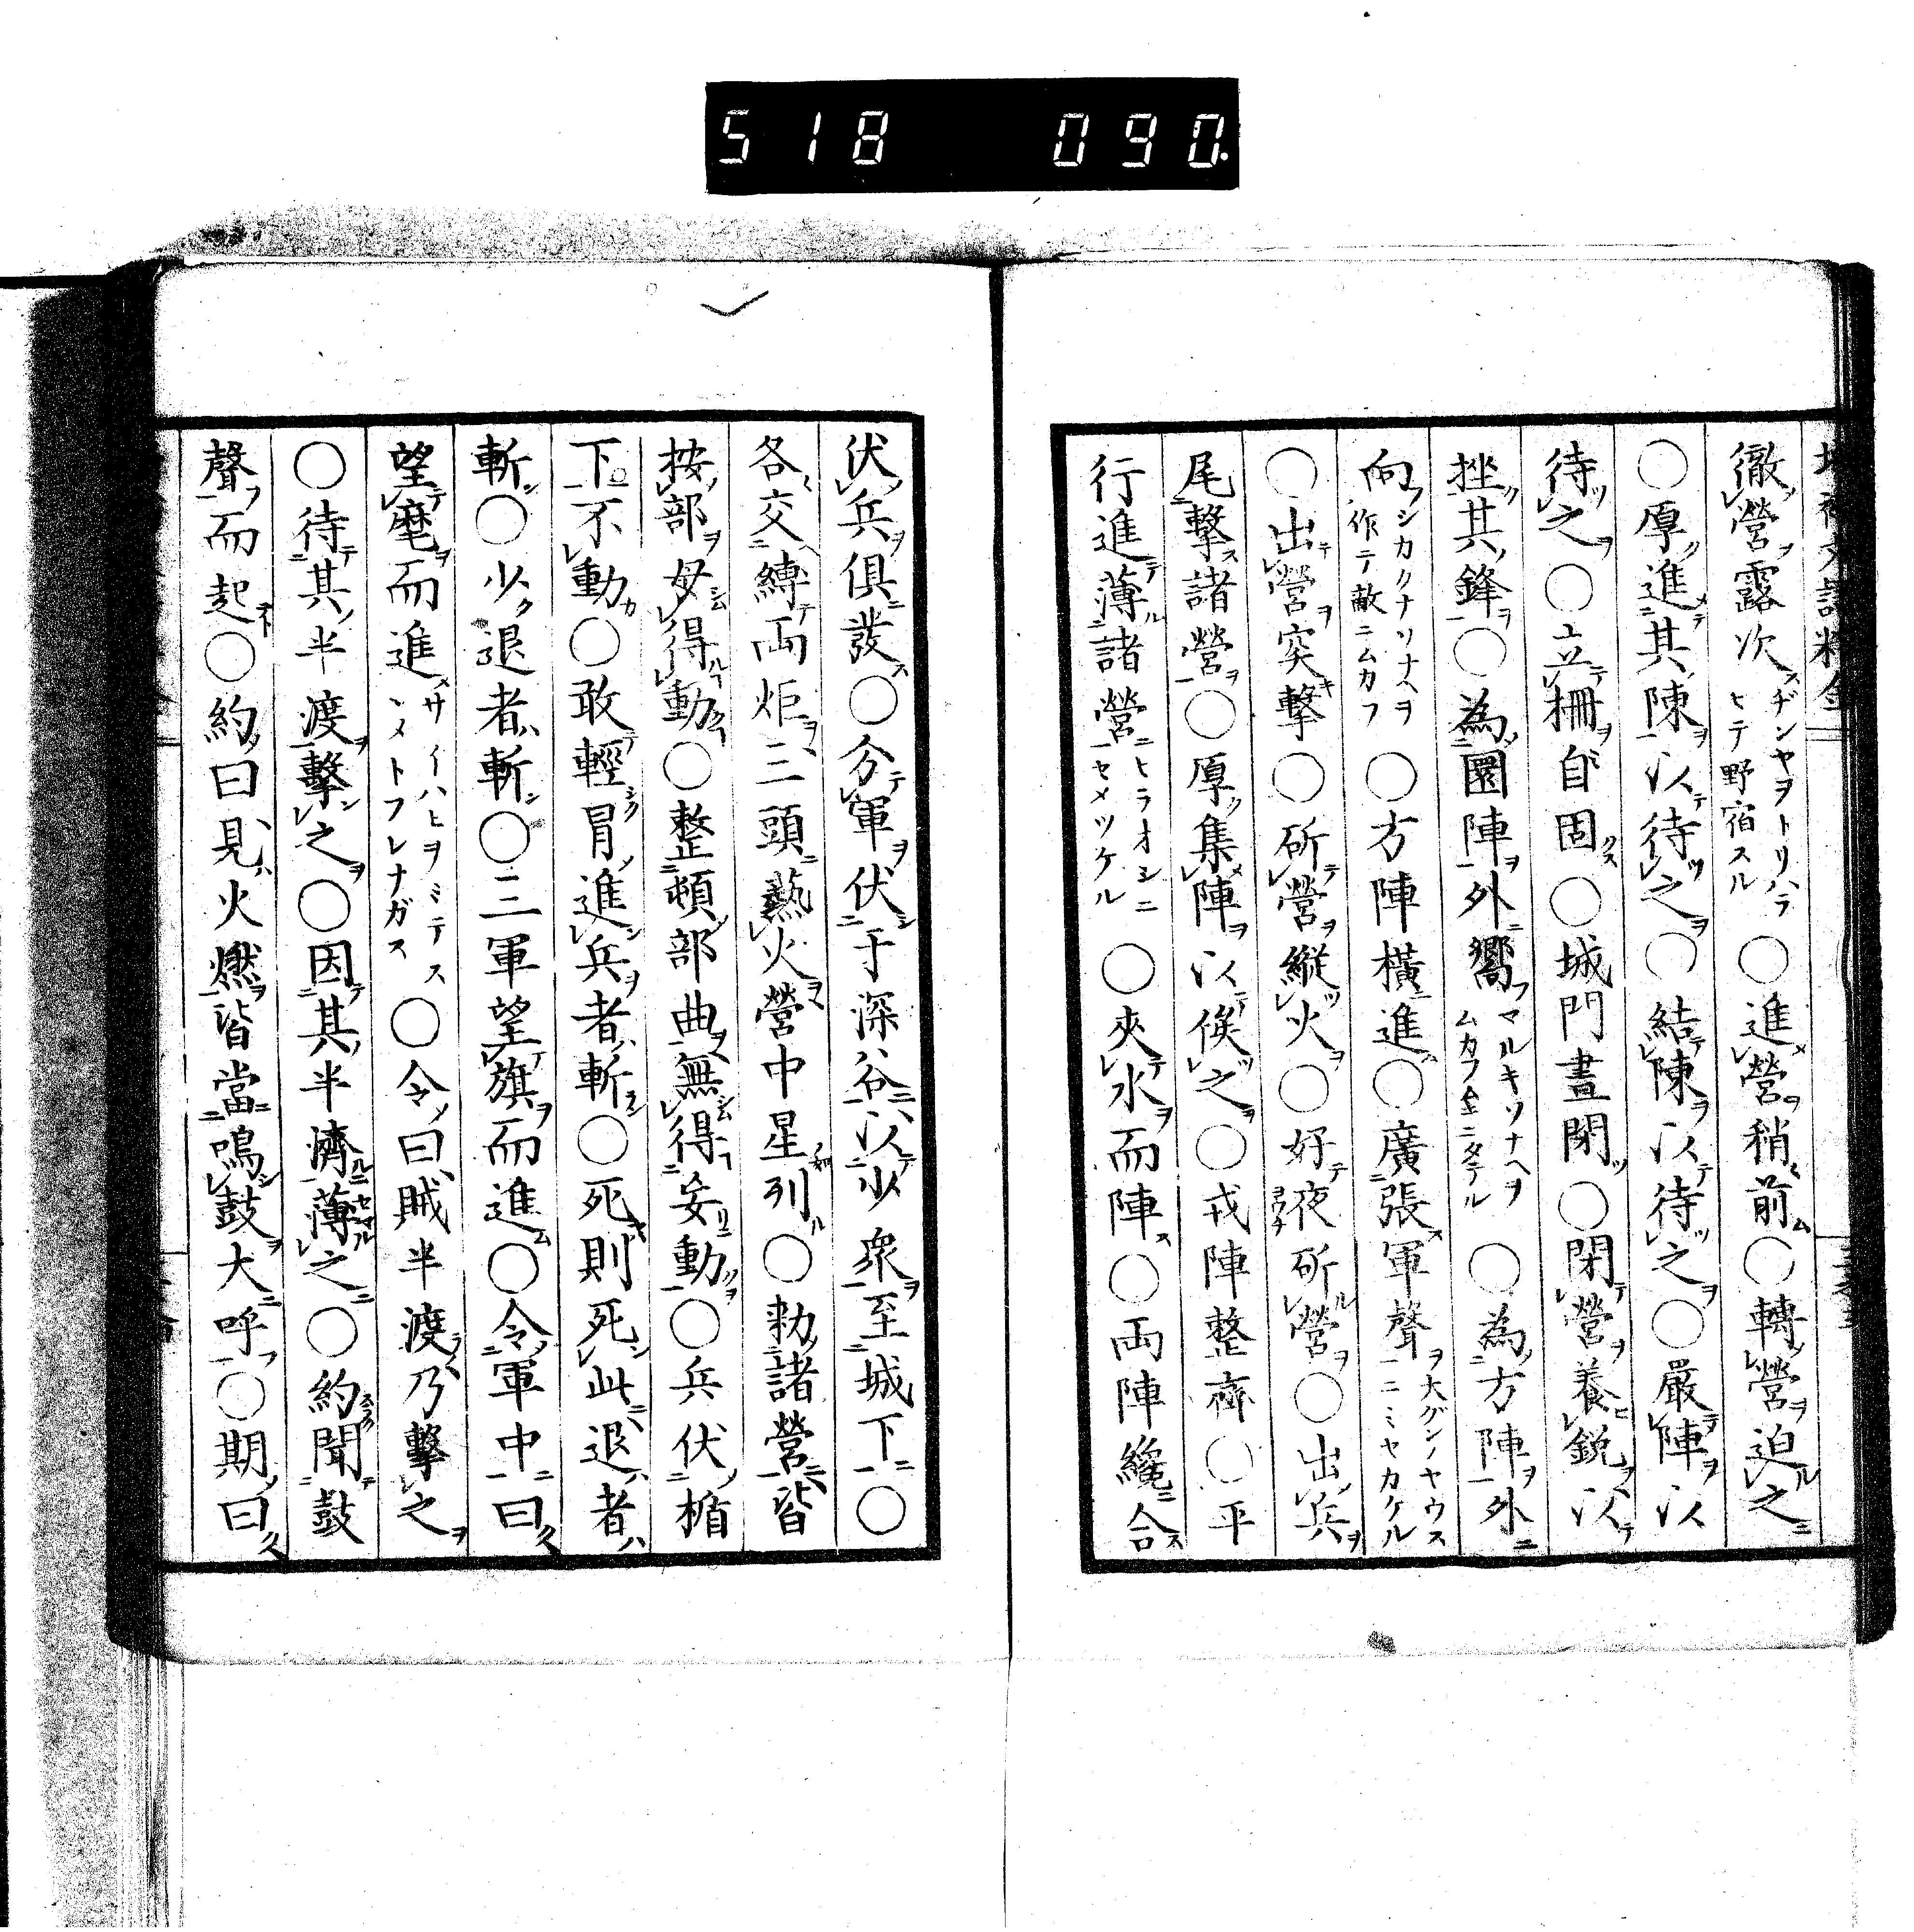 518 090.
徹営露次ヂンヤヲトリハラヒテ野宿スル○進営稍前○轉営迫之
○厚進其陳以待之○結陳以待之○嚴陣以
待之○立柵自固○城門晝閉○閉営養鋭以
挫其鋒○為圜陣外嚮マルキソナヘヲムカフ𫝆ニタテル○為方陣外
向シカクナソナヘヲ作テ敵ニムカフ○方陣横進○廣張軍聲大グンノヤウスニミヤカケル
○出営突撃○斫営縦火○好夜斫営○出兵
尾撃諸営○厚集陣以俟之○戎陣整齊○平
行進薄諸営ヒラオシニセメツケル○夾水而陣○両陣纔合
伏兵俱發○分軍伏于深谷以少衆至城下○
各交縛両炬三頭爇火営中星列○勅諸営皆
按部毋得動○整頓部曲無得妄動○兵伏楯
下不動○敢輕冒進兵者斬○死則死此退者
斬○少退者斬○三軍望旗而進○令軍中曰
望麾而進サイハヒヲミテスヽメトフレナガス○令曰賊半渡乃撃之
○待其半渡撃之○因其半濟薄之○約聞鼓
聲而起○約曰見火燃皆當鳴鼓大呼○期曰